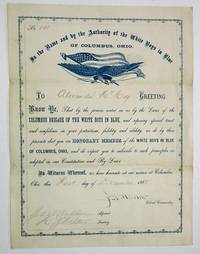 No.
In the Name and by the Authority of the White Boys in Blue
OF COLUMBUS, OHIO.
To Alexander
GREETING
Know Ye, That by the powers vested in us by the Laws of the
COLUMBUS BRIGADE OF THE WHITE BOYS IN BLUE, and reposing special trust
and confidence in your patriotism, fidelity and ability, we do by these
presents elect you an HONORARY MEMBER of the WHITE BOYS IN BLUE
OF COLUMBUS, OHIO, and do expect you to subscribe to such principles as
adopted in our Constitution and By-Laws.
In Witness Whereof, we have hereunto set our names at Columbus,
Ohio, this First day of